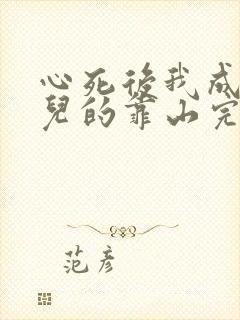 心死後我成
兒的靠山完
范彥